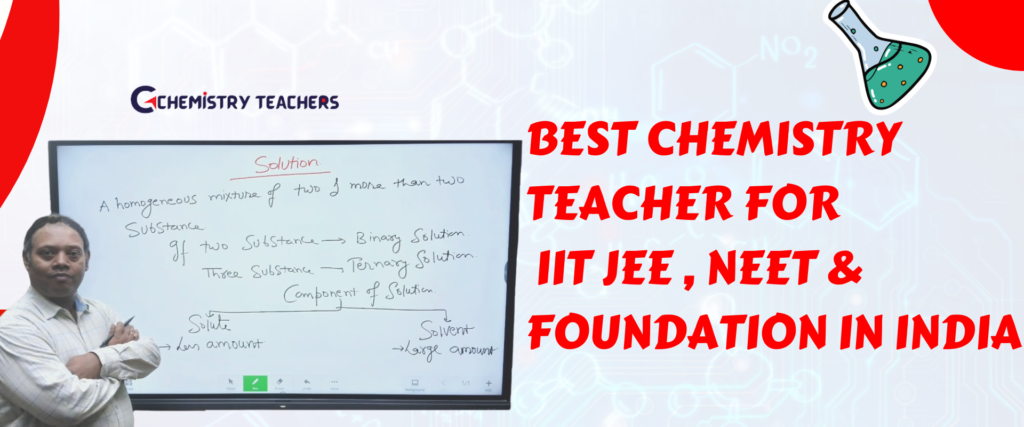 CHEMISTRY TEACHERS
NO2
BEST CHEMISTRY
TEACHER FOR
IIT JEE , NEET &
FOUNDATION IN INDIA
Solution
A homogeneous mixture of two & more than two
Substance
If two Substance → Binary Solution
Three Substance → Ternary Solution.
Component of Solution
Solute
Solvent
→ Less amount
→ Large amount